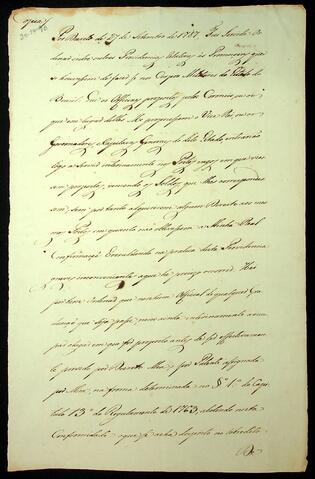 Por Decreto de 27 de Setembro de 1787 Fui Servido Or-
denar entre outras Providencias relativas ás Promoçoens que
se houvessem de fazer nos Corpos Militares do Estado do
Brazil: Que os Officiaes propostos pelos Coroneis ou os
que em lugar delles Me propozessem o Vice Rei, ou os
Governadores, e Capitaens Generaes do dito Estado, entrassem
logo a servir interinamente os Postos vagos em que vies-
sem propostos, vencendo os Soldos, que lhes correspondes-
sem, sem por tanto adquirirem algum Direito aos mes-
mos Postos em quanto não obtivessem a Minha Real
Confirmação. E considerando na pratica desta Providencia
graves inconvenientes a que he preciso occorrer: Hei
por bem Ordenar que nenhum Official de qualquer Gra-
duação que seja passe nem ainda interinamente a occu-
par o lugar em que foi proposto antes de ser effectivamen-
te provido por Decreto Meu, e por Patente assignada
por Mim, na forma determinada no § 1º do Capi-
tulo 13º do Regulamento de 1763, abolindo nesta
Conformidade o que se acha disposto no sobredito
De